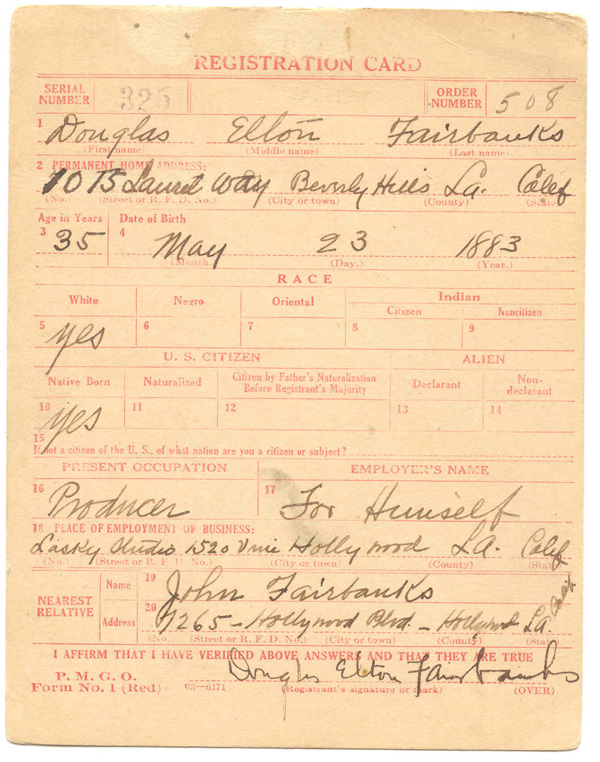 REGISTRATION CARD
SERIAL NUMBER 325 ORDER NUMBER 508
1 Douglas Elton Fairbanks
(First name) (Middle name) (Last name)
2 PERMANENT HOME ADDRESS:
1015 Laurel Way Beverly Hills La. Calif
(No.) (Street or R. F. D. No.) (City or town) (County) (State)
Age in Years Date of Birth
3 35 4 May 23 1883
(Month.) (Day.) (Year.)
RACE
White Negro Oriental Indian
Citizen Noncitizen
5 yes 6 7 8 9
U. S. CITIZEN ALIEN
Native Born Naturalized Citizen by Father's Naturalization Before Registrant's Majority Declarant Non-declarant
10 yes 11 12 13 14
15
If not a citizen of the U. S., of what nation are you a citizen or subject?
PRESENT OCCUPATION EMPLOYER'S NAME
16 Producer 17 For Himself
18 PLACE OF EMPLOYMENT OR BUSINESS:
Lasky Studio 1520 Vine Hollywood LA. Calif
(No.) (Street or R. F. D. No.) (City or town) (County) (State)
NEAREST RELATIVE Name 19 John Fairbanks
Address 20 7265 - Hollywood Blvd. - Hollywood LA Calif
(No.) (Street or R. F. D. No.) (City or town) (County) (State)
I AFFIRM THAT I HAVE VERIFIED ABOVE ANSWERS AND THAT THEY ARE TRUE
P. M. G. O.
Form No. 1 (Red) 03—6171 Douglas Elton Fairbanks
(Registrant's signature or mark) (OVER)